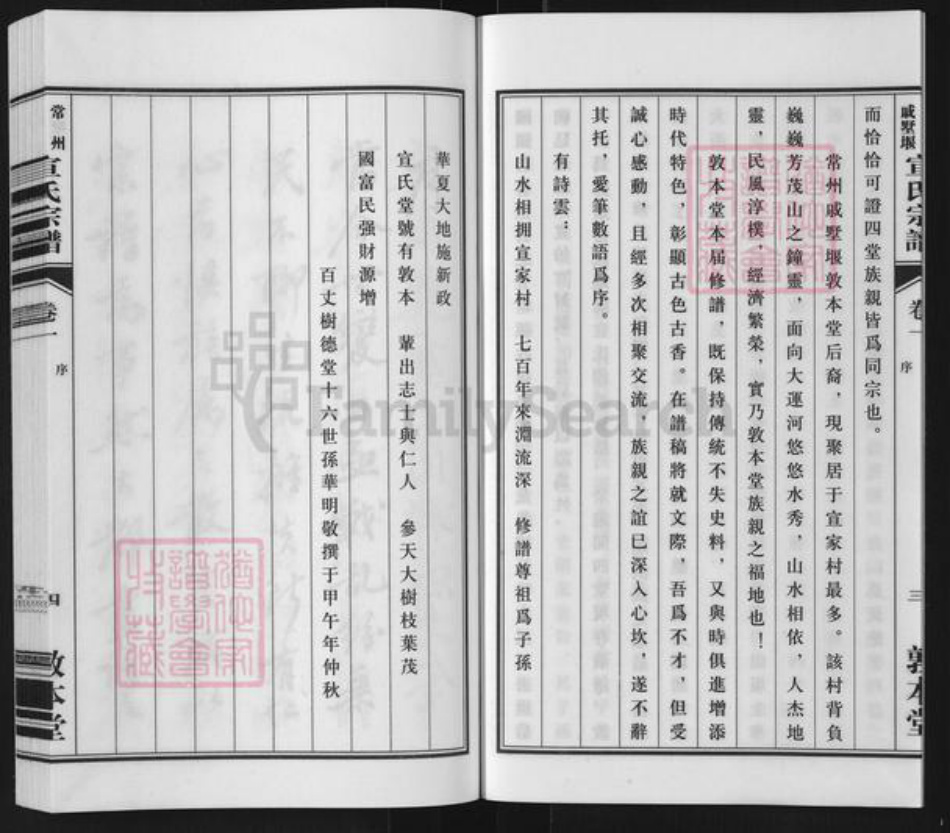 戚墅堰 宣氏宗譜 卷一 序 三 敦本堂
而恰恰可證四堂族親皆爲同宗也。
常州戚墅堰敦本堂后裔，現聚居于宣家村最多。該村背負
巍巍芳茂山之鐘靈，面向大運河悠悠水秀，山水相依，人杰地
靈，民風淳樸，經濟繁榮，實乃敦本堂族親之福地也！
敦本堂本届修譜，既保持傳統不失史料，又與時俱進增添
時代特色，彰顯古色古香。在譜稿將就文際，吾爲不才，但受
誠心感動，且經多次相聚交流，族親之誼已深入心坎，遂不辭
其托，爱筆數語爲序。
有詩雲：
山水相拥宣家村 七百年來淵流深 修譜尊祖爲子孫
華夏大地施新政
宣氏堂號有敦本 輩出志士與仁人 參天大樹枝葉茂
國富民强財源增
百丈樹德堂十六世孫華明敬撰于甲午年仲秋
常州 宣氏宗譜 卷一 序 四 敦本堂
FamilySearch